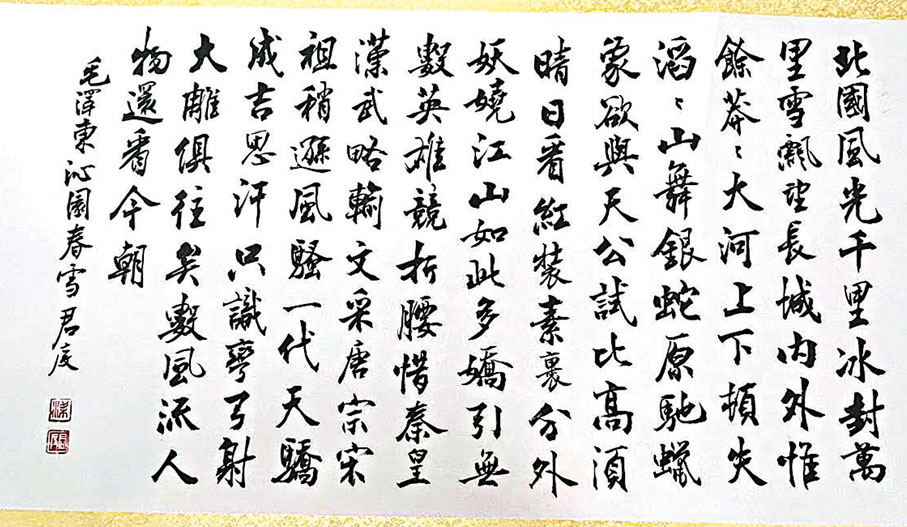 北國風光千里冰封萬
里雪飄望長城内外惟
餘莽〻大河上下頓失
滔〻山舞銀蛇原馳蠟
象欲與天公試比高須
晴日看紅裝素裹分外
妖嬈江山如此多嬌引無
數英雄競折腰惜秦皇
漢武略輸文采唐宗宋
祖稍遜風騷一代天驕
成吉思汗只識彎弓射
大雕俱往矣數風流人
物還看今朝
毛澤東沁園春雪君